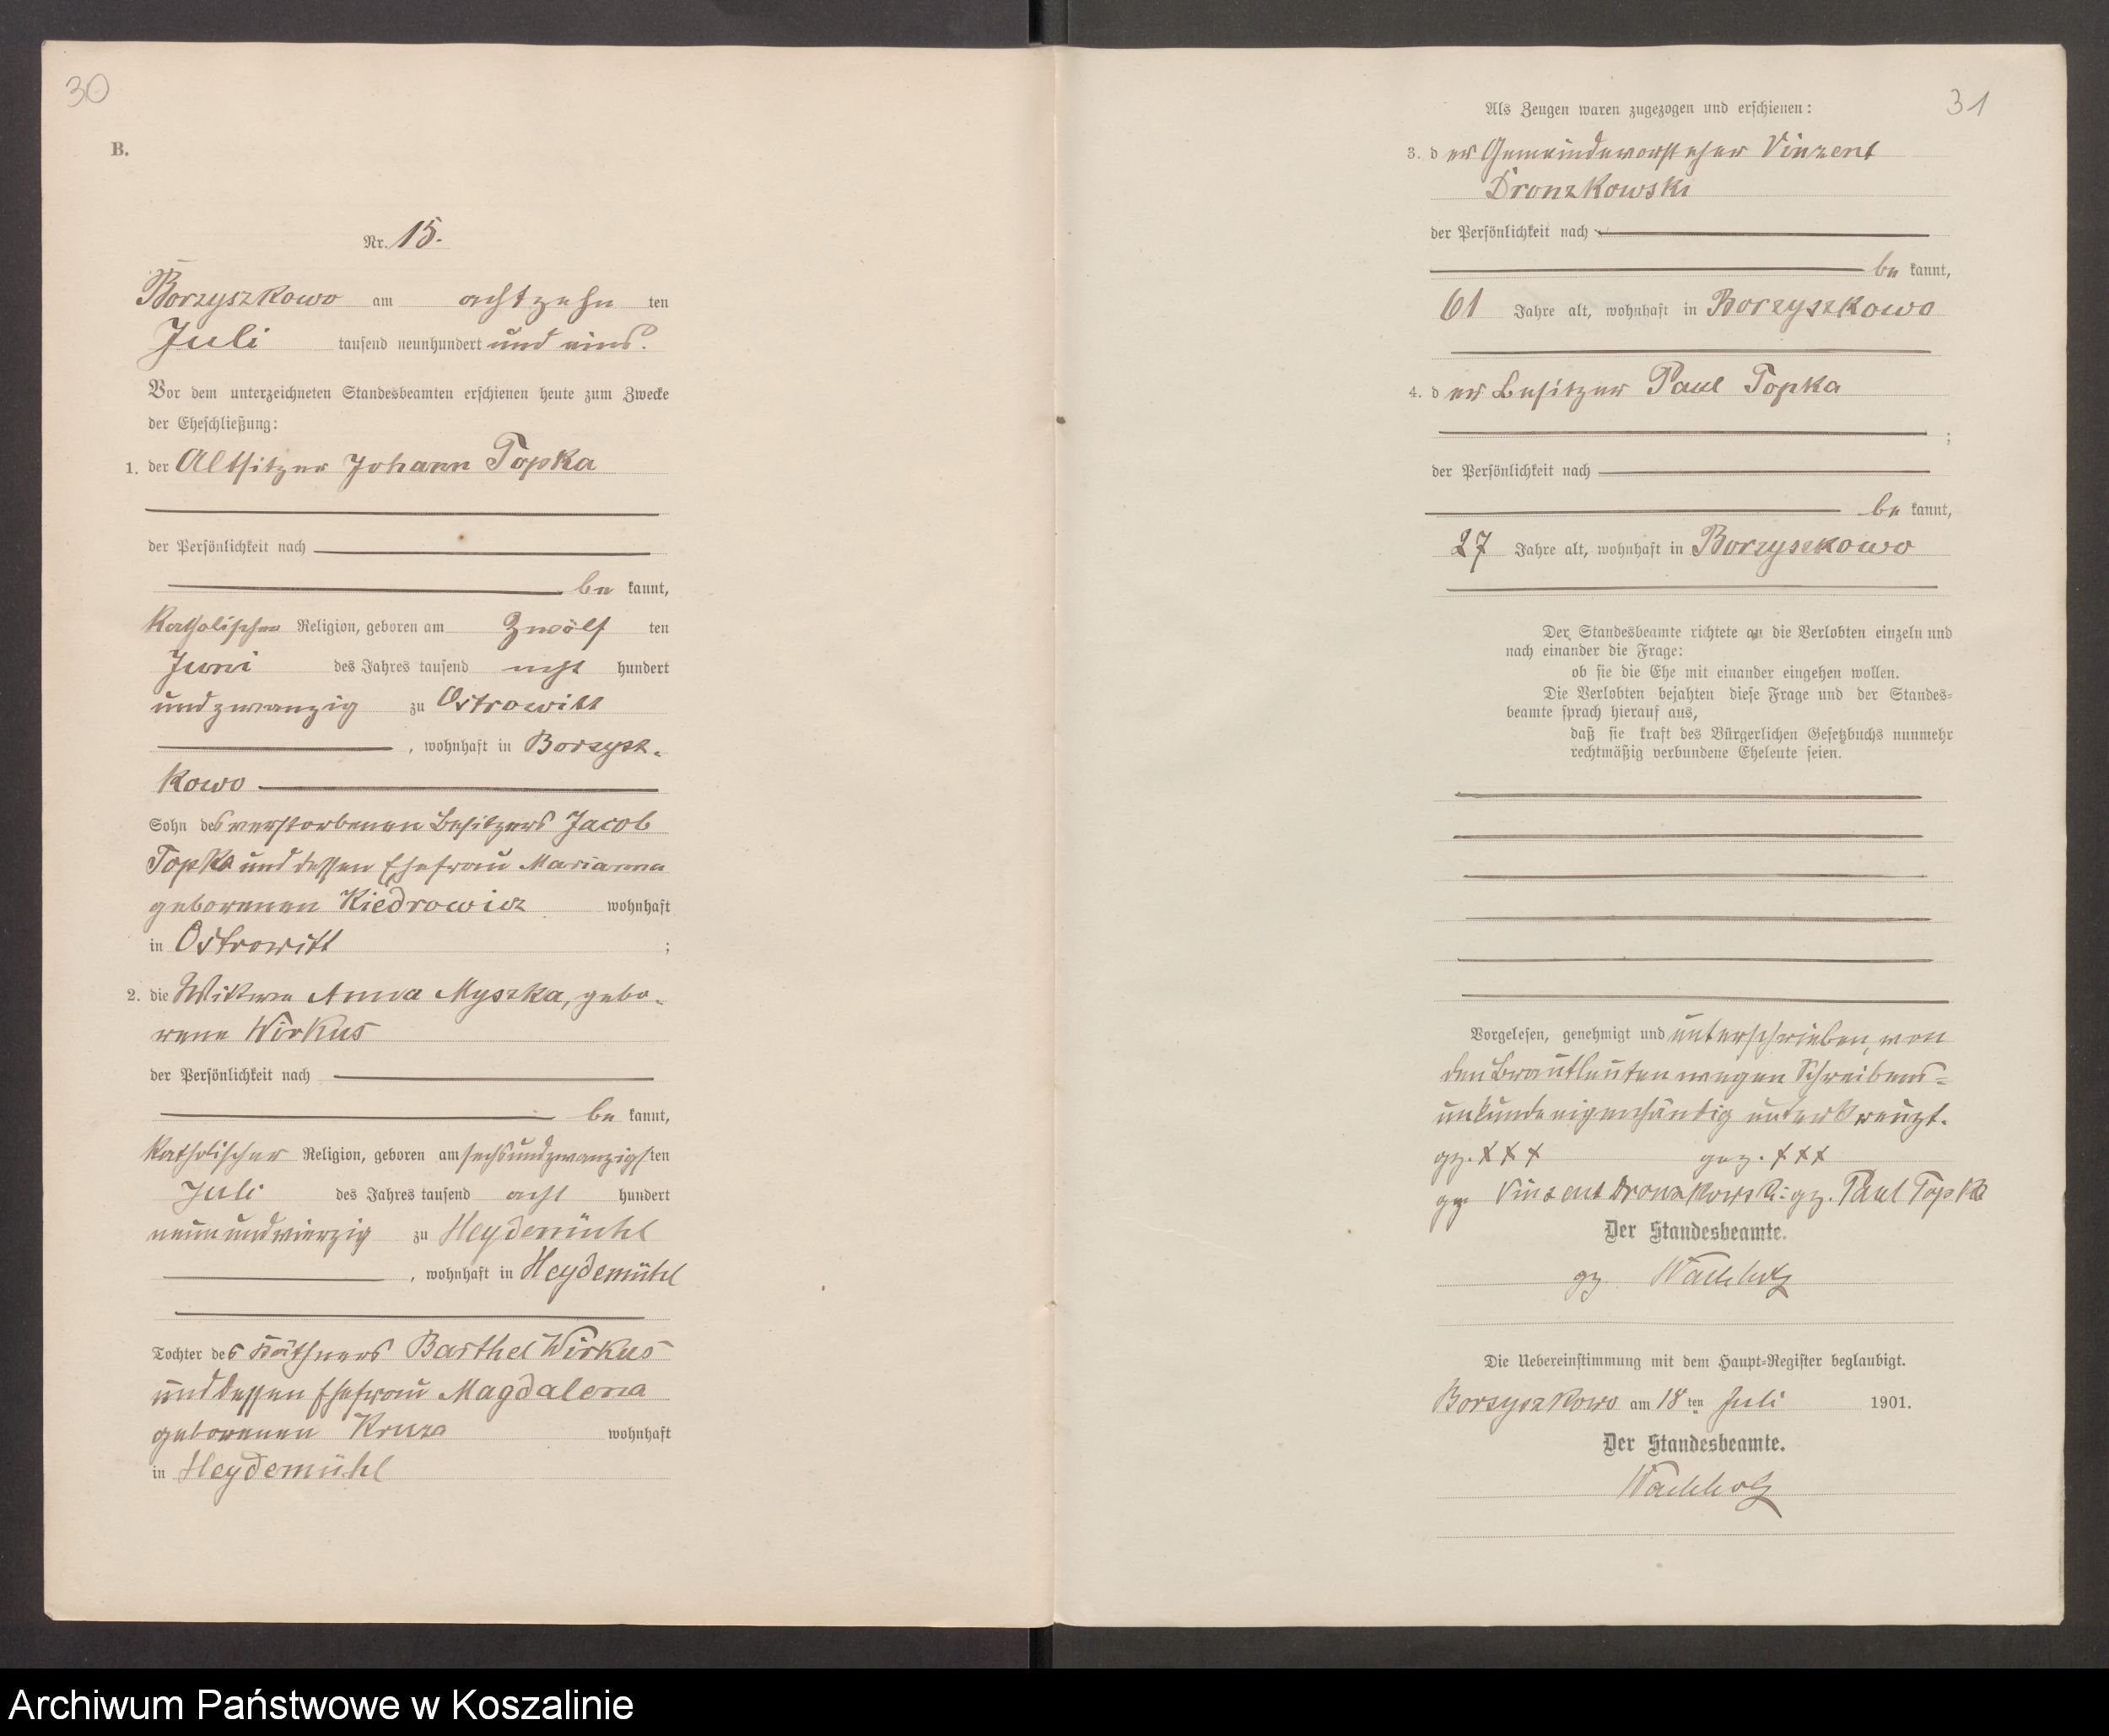 30
B.
Nr. 15.
Borzyszkowo am achtzehn ten
Juli tausend neunhundert und eins.
Vor dem unterzeichneten Standesbeamten erschienen heute zum Zwecke
der Eheschließung:
1. der Altsitzer Johann Topka
der Persönlichkeit nach
be kannt,
katholischer Religion, geboren am Zwölf ten
Juni des Jahres tausend acht hundert
und zwanzig zu Ostrowitt
, wohnhaft in Borzysz-
kowo
Sohn des verstorbenen Besitzers Jacob
Topka und dessen Ehefrau Marianna
geborenen Kiedrowicz wohnhaft
in Ostrowitt ;
2. die Witwe Anna Myszka, gebo-
rene Wirkus
der Persönlichkeit nach
be kannt,
katholischer Religion, geboren am sechsundzwanzigsten
Juli des Jahres tausend acht hundert
neunundvierzig zu Heydemühl
, wohnhaft in Heydemühl
Tochter des Käthners Barthel Wirkus
und dessen Ehefrau Magdalena
geborenen Kruza wohnhaft
in Heydemühl
31
Als Zeugen waren zugezogen und erschienen:
3. der Gemeindevorsteher Vinzent
Dronzkowski
der Persönlichkeit nach
be kannt,
61 Jahre alt, wohnhaft in Borzyszkowo
4. der Besitzer Paul Topka
;
der Persönlichkeit nach
be kannt,
27 Jahre alt, wohnhaft in Borzyszkowo
Der Standesbeamte richtete an die Verlobten einzeln und
nach einander die Frage:
ob sie die Ehe mit einander eingehen wollen.
Die Verlobten bejahten diese Frage und der Standes-
beamte sprach hierauf aus,
daß sie kraft des Bürgerlichen Gesetzbuchs nunmehr
rechtmäßig verbundene Eheleute seien.
Vorgelesen, genehmigt und unterschrieben, von
den Brautleuten wegen Schreibens-
unkunde eigenhändig unterkreuzt.
gz. XXX gez. XXX
gz. Vinzent Dronzkowski gz. Paul Topka
Der Standesbeamte.
gz Wachholz
Die Uebereinstimmung mit dem Haupt-Register beglaubigt.
Borzyszkowo am 18 ten Juli 1901.
Der Standesbeamte.
Wachholz
Archiwum Państwowe w Koszalinie